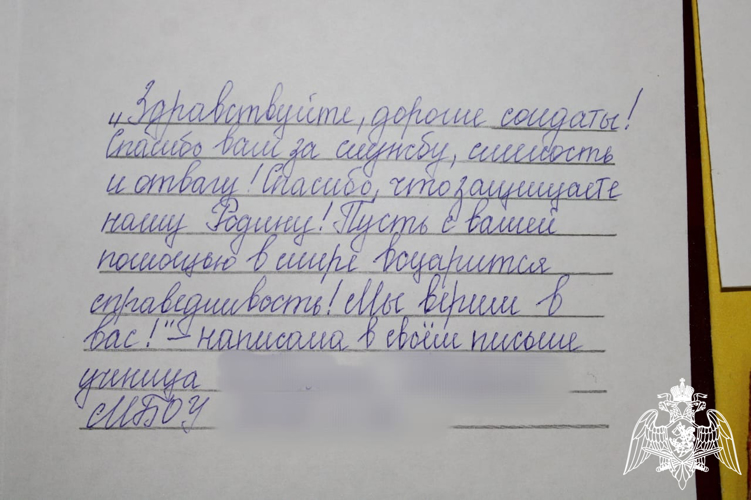 „Здравствуйте, дорогие солдаты!
Спасибо вам за службу, смелость
и отвагу! Спасибо, что защищаете
нашу Родину! Пусть с вашей
помощью в мире воцарится
справедливость! Мы верим в
вас!" – написала в своём письме
ученица
МБОУ